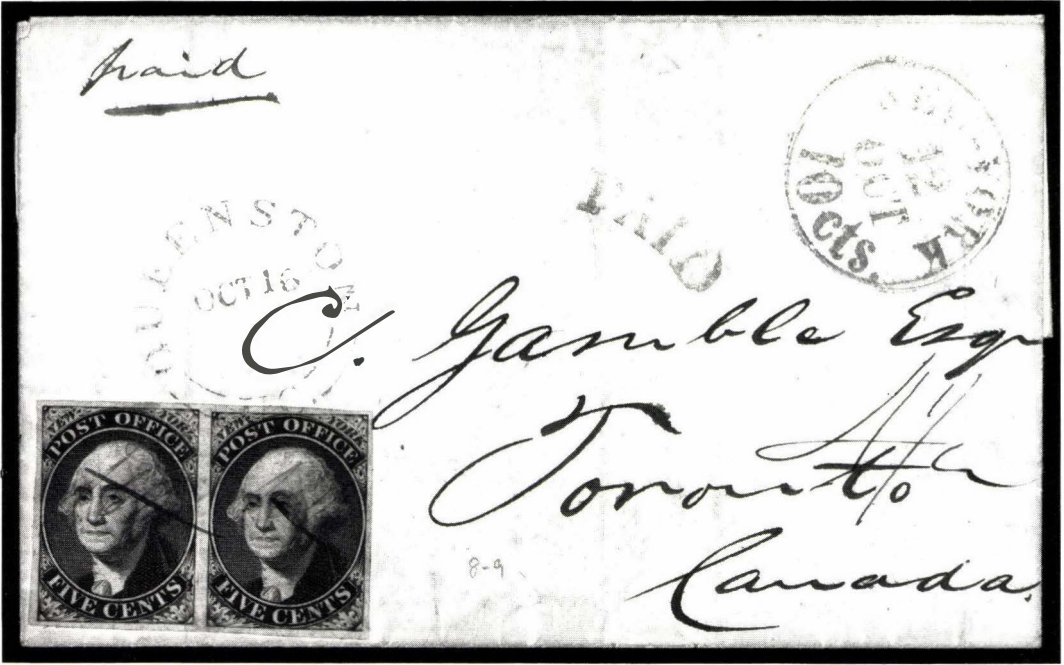 paid
NEW-YORK
12
OCT
10cts.
PAID
QUEENSTON
OCT 16
C. Gamble Esqr
Toronto
Canada.
8-9
NEW YORK
POST OFFICE
FIVE CENTS
NEW YORK
POST OFFICE
FIVE CENTS